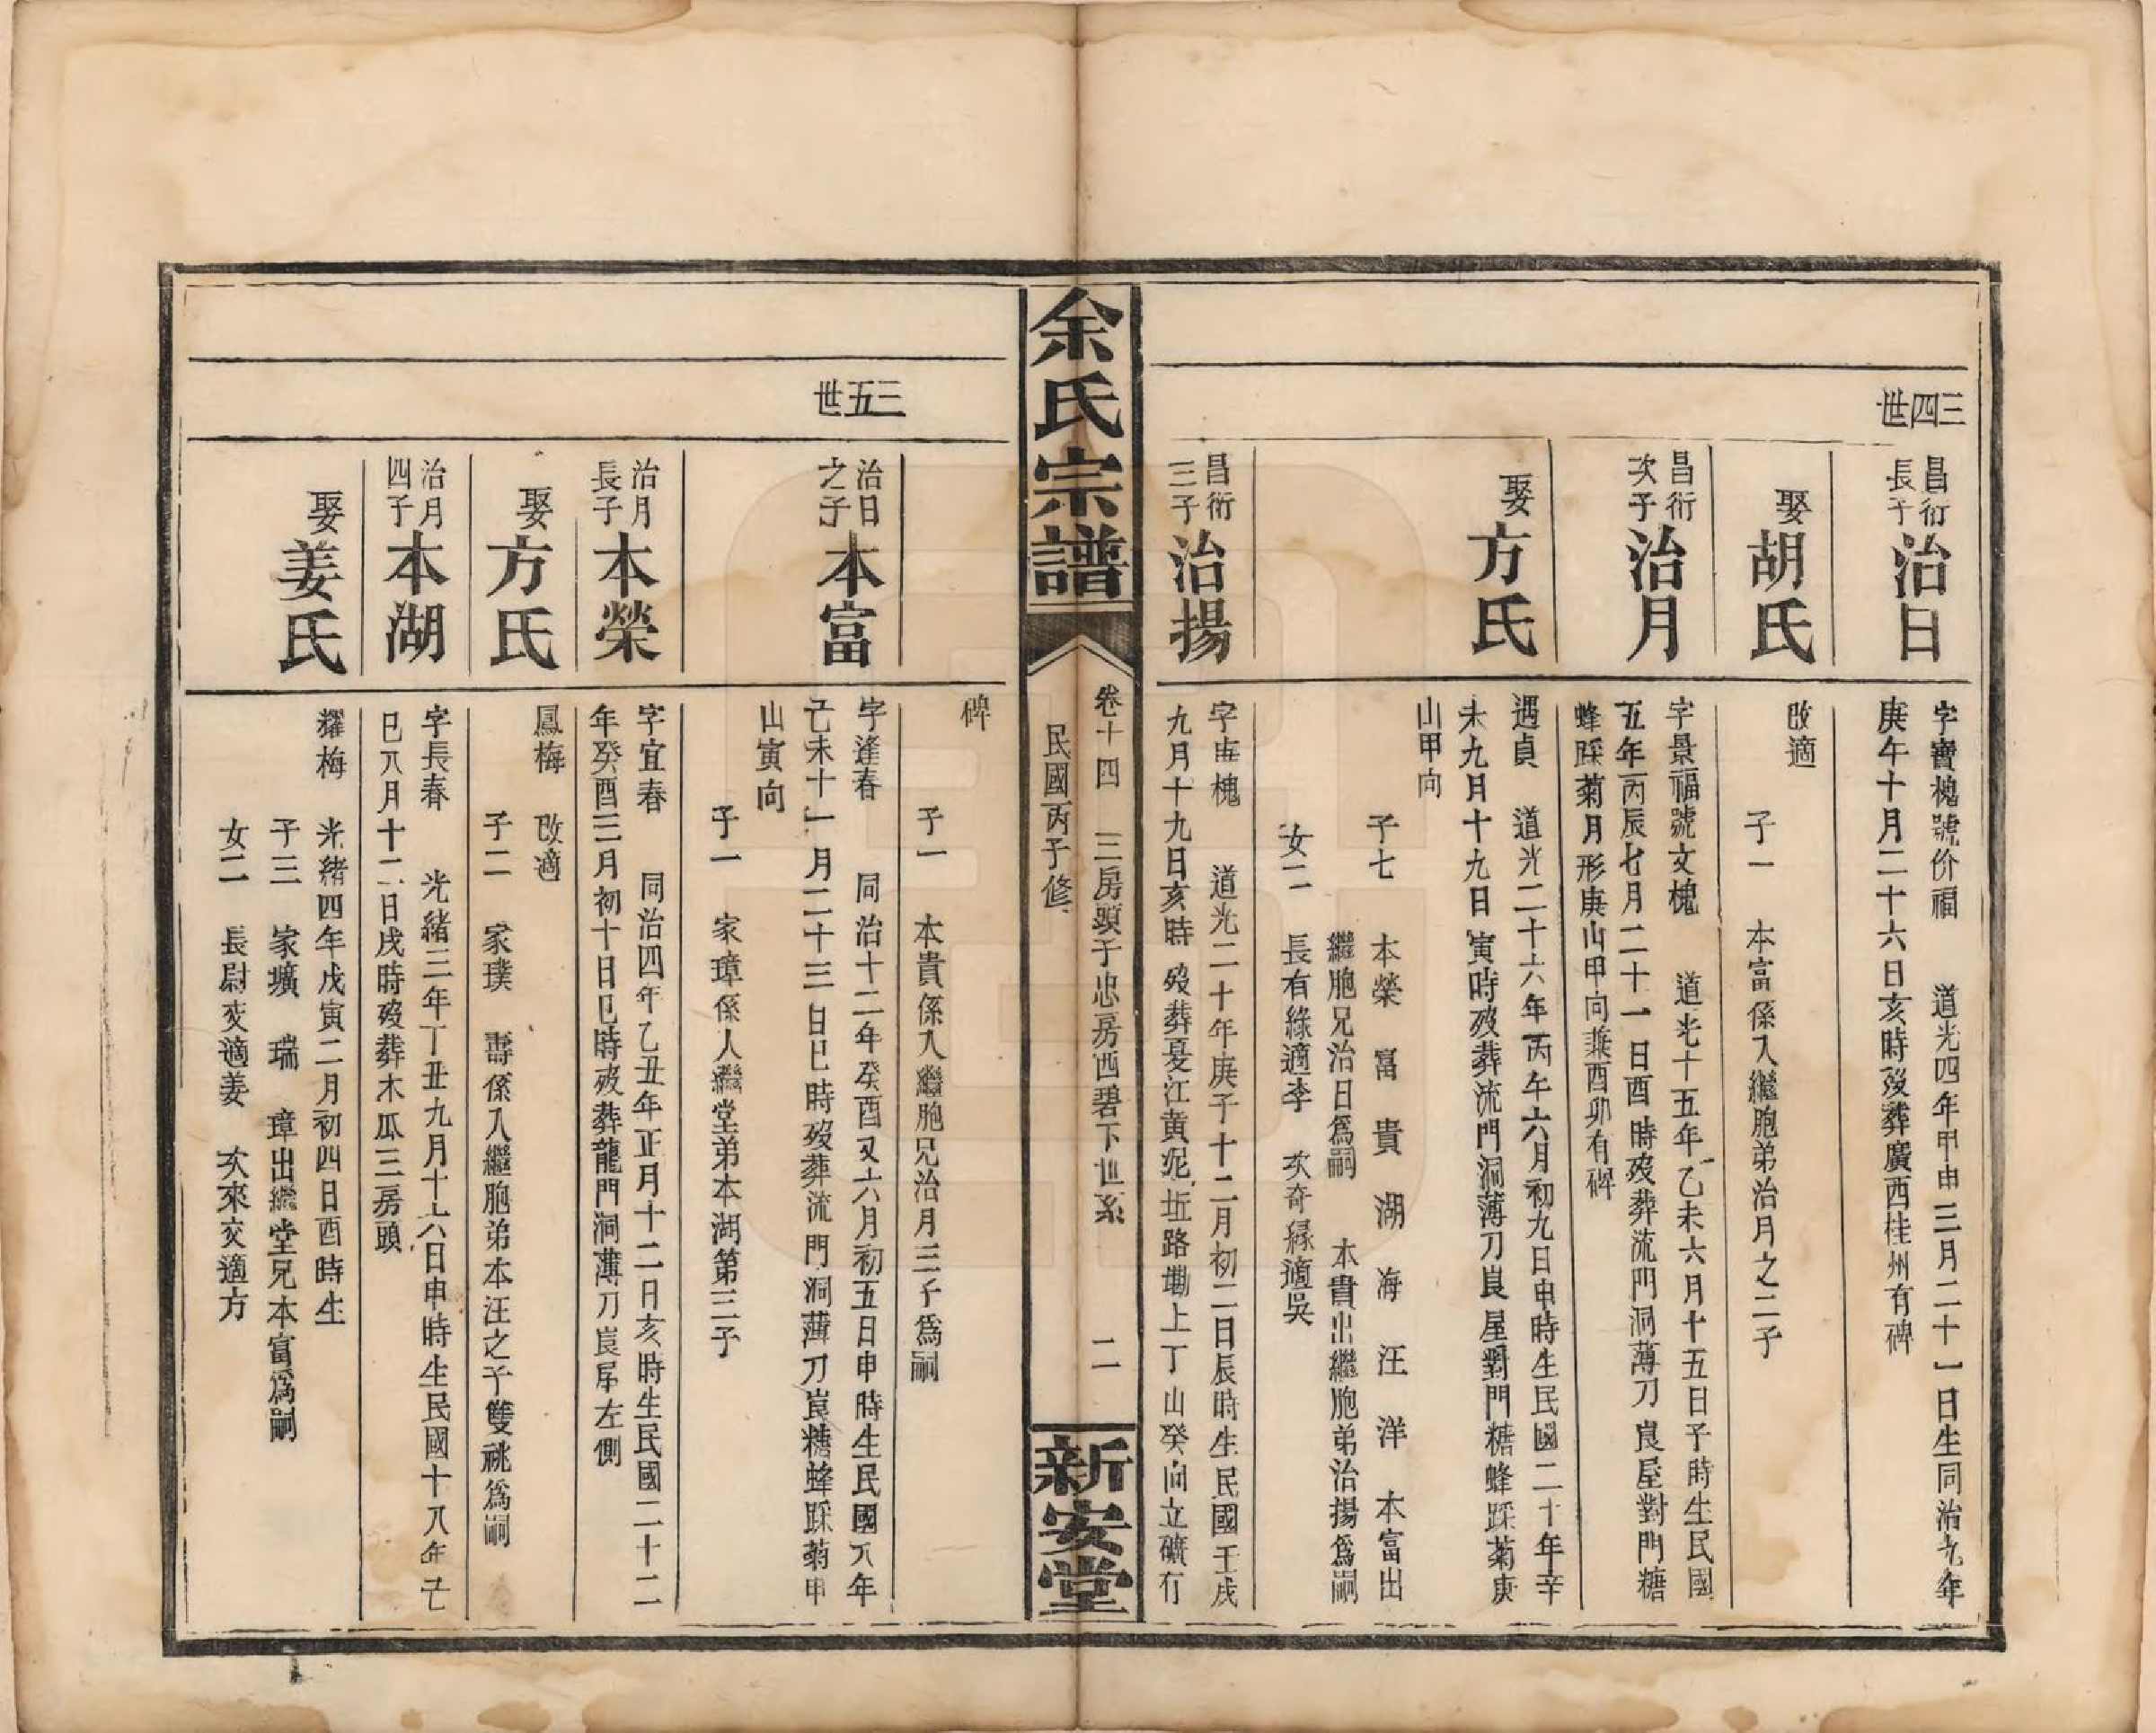 三四世
昌衍長子 治日
字寶槐號价福 道光四年甲申三月二十一日生同治九年
庚午十月二十六日亥時歿葬廣西桂州有碑
娶 胡氏
改適
子一 本富係入繼胞弟治月之二子
昌衍次子 治月
字景福號文槐 道光十五年乙未六月十五日子時生民國
五年丙辰七月二十一日酉時歿葬流門洞薄刀崀屋對門糖
蜂踩菊月形庚山甲向兼酉卯有碑
娶 方氏
遇貞 道光二十六年丙午六月初九日申時生民國二十年辛
未九月十九日寅時歿葬流門洞薄刀崀屋對門糖蜂踩菊庚
山甲向
子七 本榮 富 貴 湖 海 汪 洋 本富出
繼胞兄治日爲嗣 本貴出繼胞弟治揚爲嗣
女二 長有緣適李 次奇緣適吳
昌衍三子 治揚
字 槐 道光二十年庚子十二月初二日辰時生民國壬戌
九月十九日亥時歿葬憂江黃泥坵路塝上丁山癸向立礦有
余氏宗譜
卷十四 三房頭于忠房西碧下世系 二
民國丙子修
新安堂
碑
子一 本貴係入繼胞兄治月三子爲嗣
三五世
治日之子 本富
字逢春 同治十二年癸酉又六月初五日申時生民國八年
己未十一月二十三日巳時歿葬流門洞薄刀崀糖蜂踩菊申
山寅向
子一 家璋係入繼堂弟本湖第三子
治月長子 本榮
字宜春 同治四年乙丑年正月十二日亥時生民國二十二
年癸酉三月初十日巳時歿葬龍門洞薄刀崀屋左側
娶 方氏
鳳梅 改適
子二 家璞 壽係入繼胞弟本汪之子雙祧爲嗣
治月四子 本湖
字長春 光緒三年丁丑九月十六日申時生民國十八年己
巳八月十二日戌時歿葬木瓜三房頭
娶 姜氏
耀梅 光緒四年戊寅二月初四日酉時生
子三 家壙 瑞 璋出繼堂兄本富爲嗣
女二 長尉交適姜 次來交適方